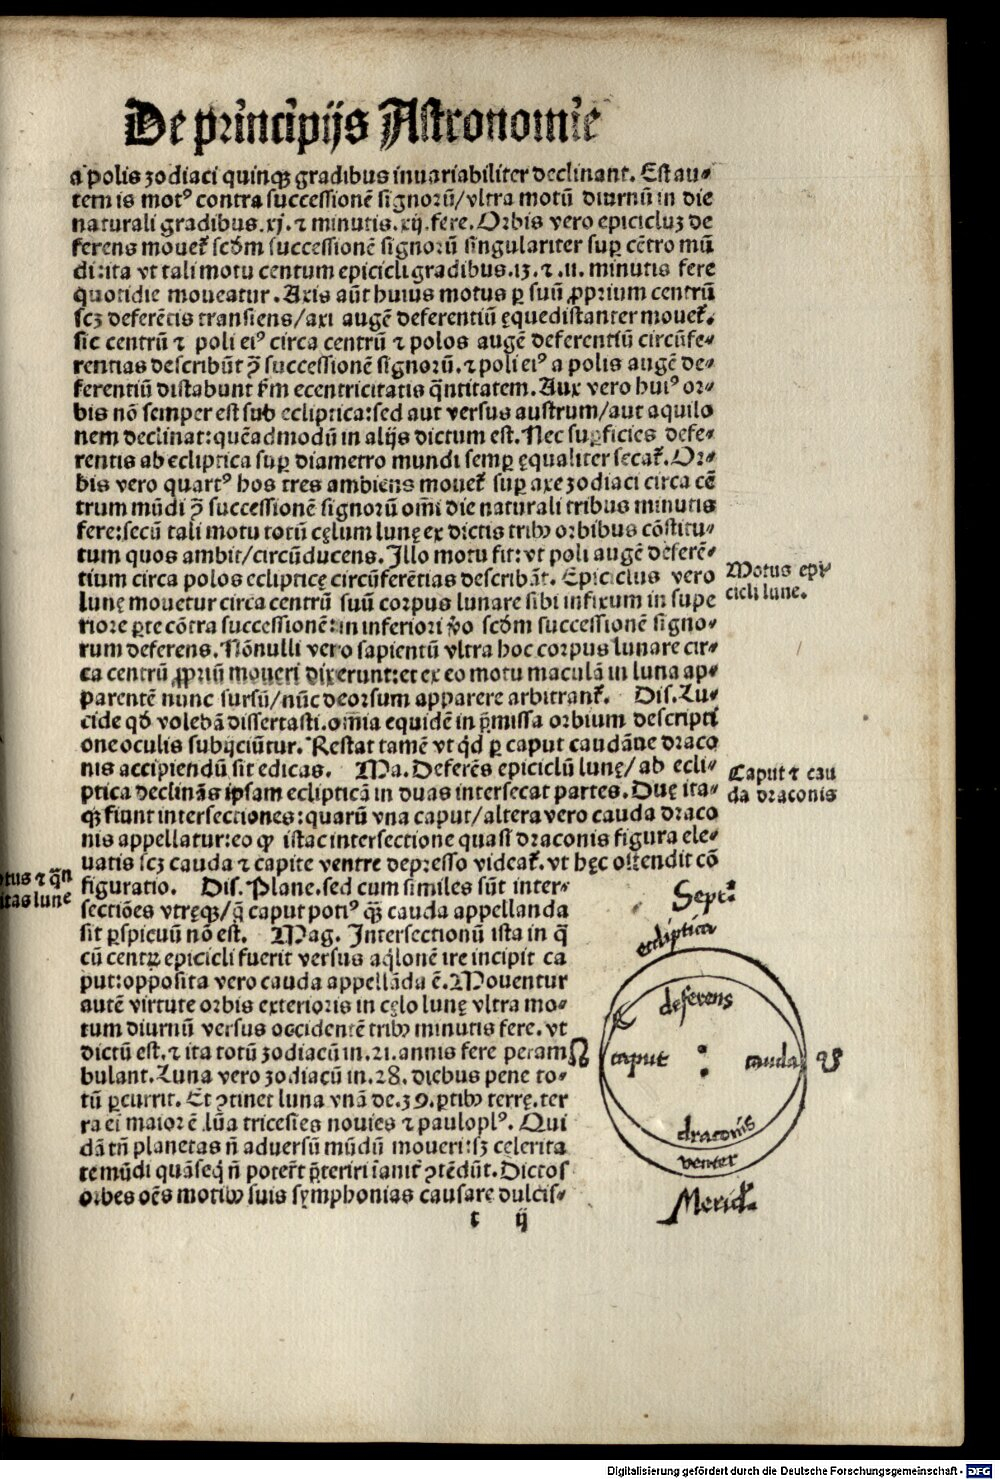 De prīncīpijs Astronomīe
a polis zodiaci quinqꝫ gradibus inuariabiliter declinant. Est au⸗
tem is mot⁹ contra successionē signorū/vltra motū diurnū in die
naturali gradibus.xj.⁊ minutis.xij.fere.Orbis vero epicicluꝫ de
ferens mouet᷑ scd̄m successionē signorū singulariter suꝑ cētro mū
di:ita vt tali motu centum epicicli gradibus.13.⁊.11.minutis fere
quotidie moueatur.Axis aūt huius motus ꝑ suū ꝓprium centrū
scꝫ deferētis transiens/axi augē deferentiū ęquedistanter mouet᷑.
sic centrū ⁊ poli ei⁹ circa centrū ⁊ polos augē deferentiū circūfe⸗
rentias describūt ꝯ̄ successionē signorū.⁊ poli ei⁹ a polis augē de⸗
ferentiū distabunt f̄m ecentricitatis q̄ntitatem.Aux vero hui⁹ or⸗
bis nō semper est sub ecliptica:sed aut versus austrum/aut aquilo
nem declinat:quēadmodū in alijs dictum est.Nec suꝑficies defe⸗
rentis ab ecliptica suꝑ diametro mundi semꝑ ęqualiter secat᷑.Or⸗
bis vero quart⁹ hos tres ambiens mouet᷑ suꝑ axe zodiaci circa cē
trum mūdi ꝯ̄ successionē signorū om̄i die naturali tribus minutis
fere:secū tali motu totū cęlum lunę ex dictis tribꝰ orbibus cōstitu⸗
tum quos ambit/circūducens.Illo motu fit:vt poli augē deferē⸗
tium circa polos eclipticę circūferētias describāt.Epiciclus vero
lunę mouetur circa centrū suū corpus lunare sibi infixum in supe
riore ꝑte cōtra successionē:in inferiori ꝟo scd̄m successionē signo⸗
rum deferens.Nōnulli vero sapientū vltra hoc corpus lunare cir⸗
ca centrū ꝓpriū moueri dixerunt:et ex eo motu maculā in luna ap⸗
parentē nunc sursū/nūc deorsum apparere arbitrant᷑. Dis.Lu⸗
cide qd̄ volebā dissertasti.om̄ia equidē in p̄missa orbium descripti
one oculis subijciūtur.Restat tamē vt qd̄ ꝑ caput caudāue draco
nis accipiendū sit edicas. Ma.Deferēs epiciclū lunę/ab ecli⸗
ptica declinās ipsam eclipticā in duas intersecat partes.Duę ita⸗
qꝫ fiunt intersectiones:quarū vna caput/altera vero cauda draco
nis appellatur:eo ꝙ istac intersectione quasi draconis figura ele⸗
uatis scꝫ cauda ⁊ capite ventre depresso videat᷑.vt hęc ostendit cō
figuratio. Dis.Plane.sed cum similes sūt inter⸗
sectiōes vtręqꝫ/q̄ caput poti⁹ qꝫ̄ cauda appellanda
sit ꝑspicuū nō est. Mag. Intersectionū ista in q̄
cū centrꝝ epicicli fuerit versus aq̄lonē ire incipit ca
put:opposita vero cauda appellāda ē.Mouentur
autē virtute orbis exterioris in cęlo lunę vltra mo⸗
tum diurnū versus occidentē tribꝰ minutis fere.vt
dictū est.⁊ ita totū zodiacū in.21.annis fere peram
bulant.Luna vero zodiacū in.28.diebus pene to⸗
tū ꝑcurrit.Et ꝯtinet luna vnā de.39.ꝑtibꝰ terrę.ter
ra ei maior ē lūa tricesies nouies ⁊ paulopl⁹.Qui
dā tn̄ planetas n̄ aduersū mūdū moueri:sꝫ celerita
te mūdi quāseq̄ n̄ potert̄ p̄teriri īanit᷑ ꝯtēdūt.Dictos
orbes oēs motibꝰ suis symphonias causare dulcis⸗
t ij
Motus epi⸗
cicli lune.
Caput ⁊ cau
da draconis
tus ⁊ q̄n
itas lunę
Sept:
ecliptica
deferens
☊ caput cauda ☋
draconis
venter
Merid.
Digitalisierung gefördert durch die Deutsche Forschungsgemeinschaft - DFG